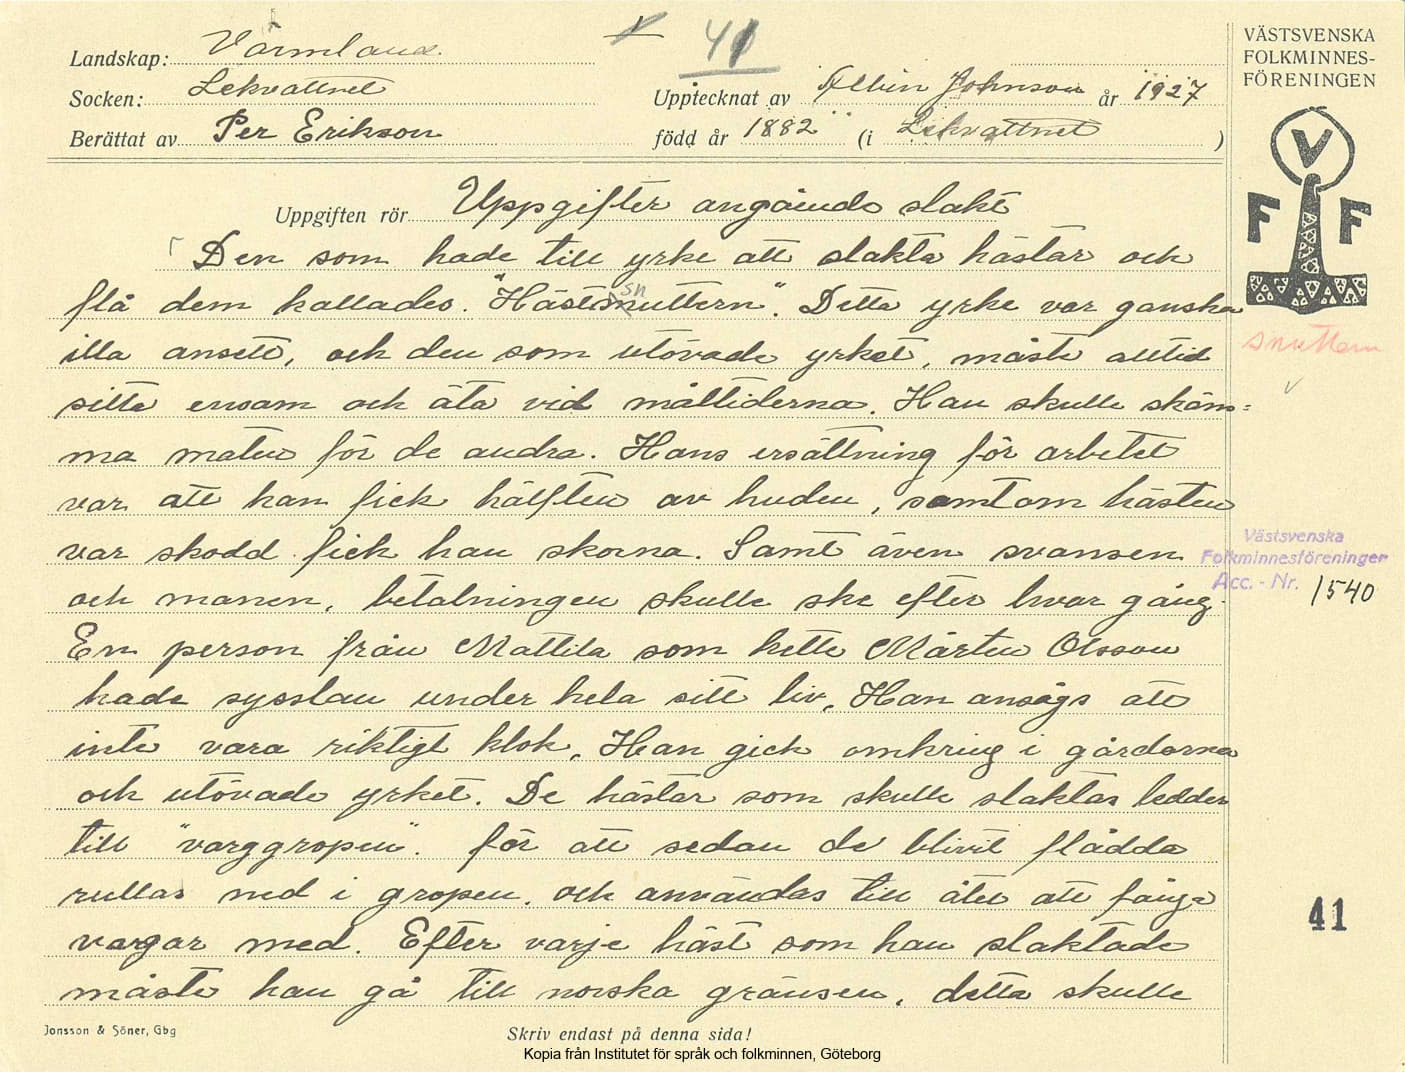 Landskap: Värmland
Socken: Lekvattnet
Berättat av Per Erikson
41
Upptecknat av Albin Johnson år 1927
född år 1882 (i Lekvattnet )
VÄSTSVENSKA
FOLKMINNES-
FÖRENINGEN
V
F F
Uppgiften rör Uppgifter angående slakt
Den som hade till yrke att slakta hästar och
flå dem kallades. "Hästsnuttern". Detta yrke var ganska
illa ansett, och den som utövade yrket, måste alltid
sitta ensam och äta vid måltiderna. Han skulle skäm=
ma maten för de andra. Hans ersättning för arbetet
var att han fick hälften av huden, samt om hästen
var skodd fick han skorna. Samt även svansen
och manen, betalningen skulle ske efter hvar gång.
En person från Mattila som hette Mårten Olsson
hade sysslan under hela sitt liv, Han ansågs att
inte vara riktigt klok, Han gick omkring i gårdarna
och utövade yrket. De hästar som skulle slaktas leddes
till "varggropen". för att sedan de blivit flådda
rullas ned i gropen, och användas till åtel att fånga
vargar med. Efter varje häst som han slaktade
måste han gå till norska gränsen, detta skulle
snuttern
Västsvenska
Folkminnesföreningen
Acc. - Nr. 1540
41
Jonsson & Söner, Gbg
Skriv endast på denna sida!
Kopia från Institutet för språk och folkminnen, Göteborg